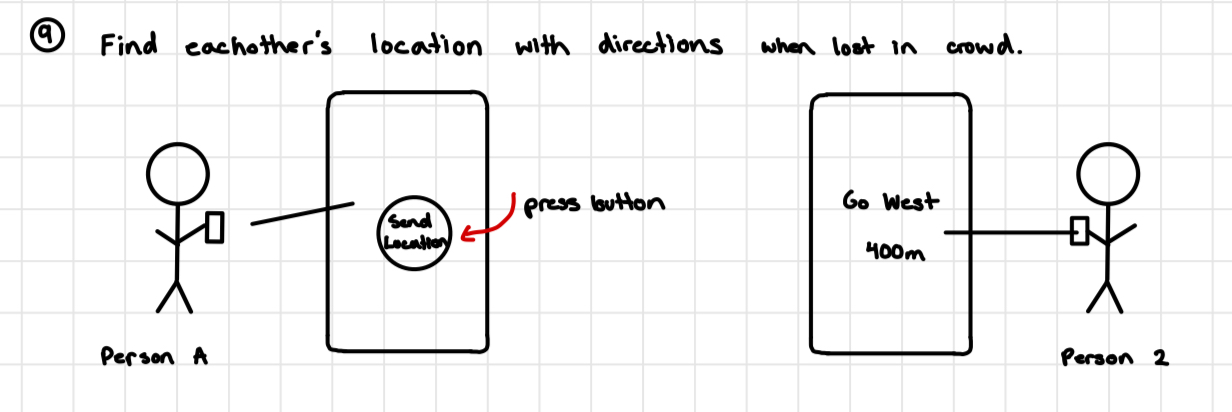 9 Find eachother's location with directions when lost in crowd.
Send
Location
press button
Go West
400m
Person A
Person 2